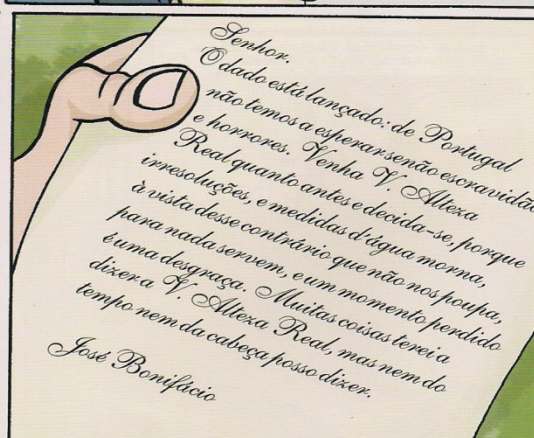 Senhor.
O dado está lançado: de Portugal
não temos a esperar senão escravidão
e horrores. Venha V. Alteza
Real quanto antes e decida-se, porque
irresoluções, e medidas d'água morna,
à vista desse contrário que não nos poupa,
para nada servem, e um momento perdido
é uma desgraça. Muitas coisas terei a
dizer a V. Alteza Real, mas nem do
tempo nem da cabeça posso dizer.
José Bonifácio